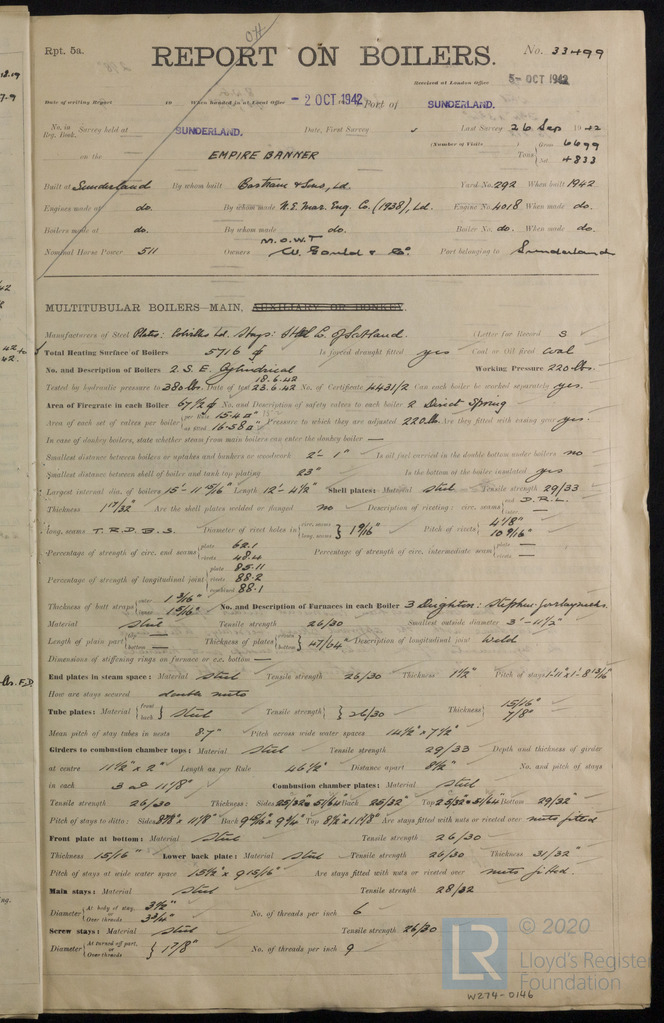 Rpt. 5a.
REPORT ON BOILERS.
No. 33499
Received at London Office
5- OCT 1942
Date of writing Report 19 When handed in at Local Office - 2 OCT 1942 Port of SUNDERLAND.
No. in Reg. Book. Survey held at SUNDERLAND. Date, First Survey Last Survey 26 Sep 1942
(Number of Visits )
on the EMPIRE BANNER Tons Gross 6699 Net 4833
Built at Sunderland By whom built Bartram & Sons, Ld. Yard No. 292 When built 1942
Engines made at do. By whom made N.E. Mar. Eng. Co. (1938), Ld. Engine No. 4018 When made do.
Boilers made at do. By whom made do. Boiler No. do. When made do.
M.O.W.T
Nominal Horse Power 511 Owners W. Gould & Co. Port belonging to Sunderland
MULTITUBULAR BOILERS—MAIN, AUXILIARY OR DONKEY.
Manufacturers of Steel Plates: Colvilles Ld. Stays: Steel Co. of Scotland. (Letter for Record S
Total Heating Surface of Boilers 5716 ϕ Is forced draught fitted yes Coal or Oil fired coal
No. and Description of Boilers 2 S.E. Cylindrical Working Pressure 220 lbs.
Tested by hydraulic pressure to 380 lbs. Date of test 18.6.42 23.6.42 No. of Certificate 4431/2 Can each boiler be worked separately yes.
Area of Firegrate in each Boiler 67½ ϕ No. and Description of safety valves to each boiler 2 Direct Spring
Area of each set of valves per boiler per Rule 15.4 □" as fitted 16.58 □" Pressure to which they are adjusted 220 lb. Are they fitted with easing gear yes.
In case of donkey boilers, state whether steam from main boilers can enter the donkey boiler —
Smallest distance between boilers or uptakes and bunkers or woodwork 2'- 1" Is oil fuel carried in the double bottom under boilers no
Smallest distance between shell of boiler and tank top plating 23" Is the bottom of the boiler insulated yes
Largest internal dia. of boilers 15'- 11 5/16" Length 12'- 4½" Shell plates: Material steel Tensile strength 29/33
Thickness 1 17/32" Are the shell plates welded or flanged no Description of riveting: circ. seams end D.R.L. inter. —
long. seams T.R.D.B.S. Diameter of rivet holes in circ. seams long. seams 1 9/16" Pitch of rivets 4 1/8" 10 9/16"
Percentage of strength of circ. end seams plate 62.1 rivets 48.4 Percentage of strength of circ. intermediate seam plate — rivets —
Percentage of strength of longitudinal joint plate 85.11 rivets 88.2 combined 88.1
Thickness of butt straps outer 1 3/16" inner 1 5/16" No. and Description of Furnaces in each Boiler 3 Deighton: Stephen
Material steel Tensile strength 26/30 Smallest outside diameter 3'- 11½"
Length of plain part top — bottom — Thickness of plates crown bottom 47/64" Description of longitudinal joint weld
Dimensions of stiffening rings on furnace or c.c. bottom —
End plates in steam space: Material steel Tensile strength 26/30 Thickness 1½" Pitch of stays 1'-11" x 1'-8 13/16"
How are stays secured double nuts
Tube plates: Material front back steel Tensile strength 26/30 Thickness 15/16" 7/8"
Mean pitch of stay tubes in nests 8.7" Pitch across wide water spaces 14½" x 7½"
Girders to combustion chamber tops: Material steel Tensile strength 29/33 Depth and thickness of girder
at centre 11½" x 2" Length as per Rule 46½" Distance apart 8½" No. and pitch of stays
in each 3 at 11 1/8" Combustion chamber plates: Material steel
Tensile strength 26/30 Thickness: Sides 25/32" & 51/64" Back 25/32" Top 25/32" & 51/64" Bottom 29/32"
Pitch of stays to ditto: Sides 8 7/8" x 11 1/8" Back 9 5/16" x 9 Top 8½" x 11 1/8" Are stays fitted with nuts or riveted over nuts fitted
Front plate at bottom: Material steel Tensile strength 26/30
Thickness 15/16" Lower back plate: Material steel Tensile strength 26/30 Thickness 31/32"
Pitch of stays at wide water space 15½" x 9 15/16" Are stays fitted with nuts or riveted over nuts fitted.
Main stays: Material steel Tensile strength 28/32
Diameter At body of stay, or Over threads 3½" 3¾" No. of threads per inch 6
Screw stays: Material steel Tensile strength 26/30
Diameter At turned off part, or Over threads 1 7/8" No. of threads per inch 9
© 2020
LR
Lloyd's Register
Foundation
W274-0146